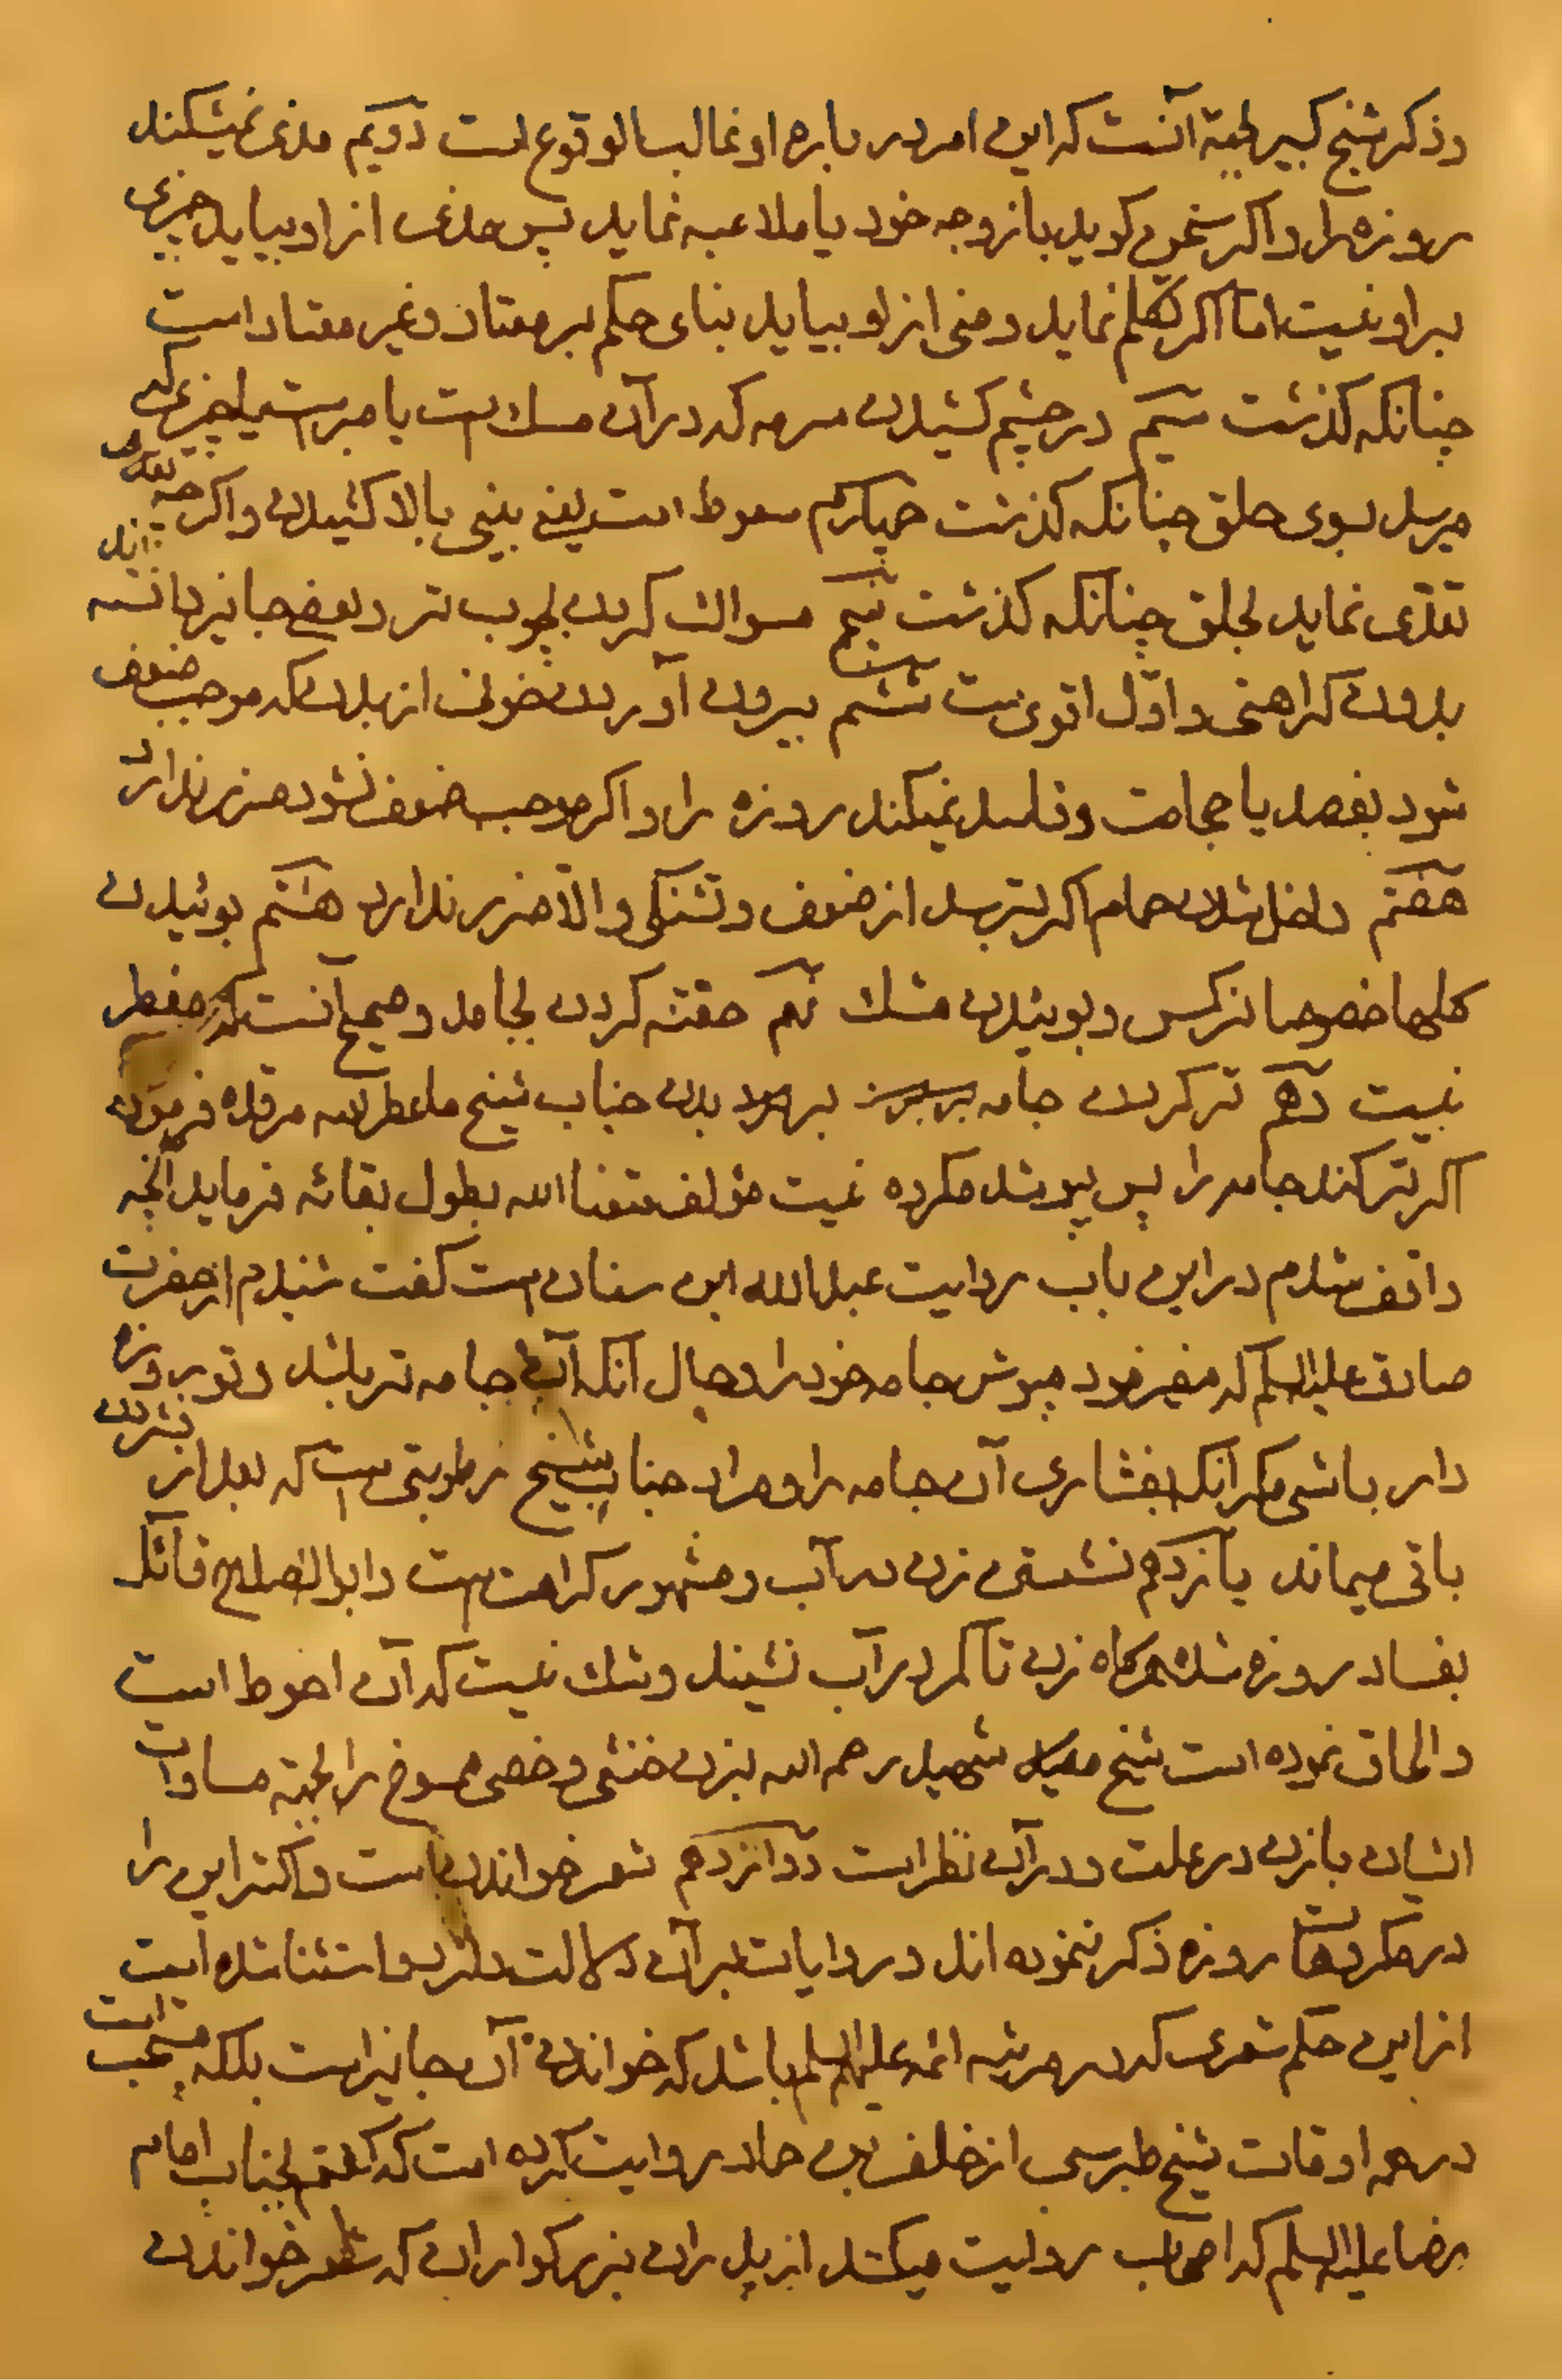 و ذکر شیخ کبیر بجهة آنست که این امر در باره او غالب الوقوع است دویم مذی نمیشکند
روزه را و اکر سخن کوید با زوجه خود یا ملاعبه نماید پس مذی از او بیاید چیزی
بر او نیست اما اکر تکلم نماید و منی از او بیاید بنای حکم بر معتاد و غیر معتاد است
چنانکه کذشت سیم در چشم کشیدن سرمه که در آن مسک است یا صبر است یا چیزی که
میرسد بسوی حلق چنانکه کذشت چهارم سعوط است یعنی بینی بالا کشیدن و اکرچه تعدی
تعدی نماید بحلق چنانکه کذشت پنجم مسواک کردن بچوب تر و بعضی جایز دانسته اند
بدون کراهتی و اول اقوی است ششم بیرون آوردن خون از بدن که موجب ضعف
شود بفصد یا حجامت و فاسد نمیکند روزه را و اکر موجب ضعف نشود ضرر ندارد
هفتم داخل شدن حمام اکر بترسد از ضعف و تشنکی و الا ضرر ندارد هشتم بوئیدن
کلها خصوصا نرکس و بوئیدن مشک نهم حقنه کردن بجامد و صحیح آنست که مفطر
نیست دهم تر کردن جامه بر بدن جناب شیخ ما عطر الله مرقده فرموده
اکر تر کند جامه را پس بپوشد مکروه نیست مؤلف متعنا الله بطول بقائه فرماید آنچه
واقف شدم در این باب روایت عبدالله ابن سنان است کفت شنیدم از حضرت
صادق علیه السلم که میفرمود مپوش جامه خود را و حال آنکه آن جامه تر باشد و تو روزه
دار باشی مکر آنکه بفشاری آن جامه را و مراد جناب شیخ رطوبتی است که بعد از فشردن
باقی میماند یازدهم نشستن زن در آب و مشهور کراهت است و ابوالصلاح قائل
بفساد روزه شده هرکاه زن تا کمر در آب نشیند و شک نیست که آن احوط است
و الحاق نموده است شیخ شهید رحمه الله بزن خنثی و خصی ممسوح را بجهة مساوات
ایشان با زن در علت و در آن نظر است دوازدهم شعر خواندن است و اکثر این را
در مکروهات روزه ذکر ننموده اند و روایات بر آن دلالت دارد و استثنا شده است
از این حکم شعری که در مرثیه ائمه علیهم السلم باشد که خواندن آن جایز است بلکه مستحب است
در همه اوقات شیخ طبرسی از خلف بن حماد روایت کرده است که کفتم بجناب امام
رضا علیه السلم که اصحاب روایت میکنند از پدران بزرکواران که شعر خواندن